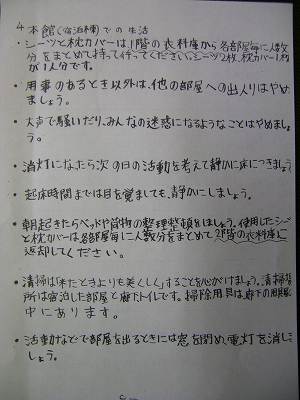 4 本館(宿泊棟)での生活
・シーツと枕カバーは1階の衣料庫から各部屋毎に人数
分をまとめて持って行ってください。シーツ2枚、枕カバー1枚
が1人分です。
・用事のあるとき以外は、他の部屋への出入りはやめ
ましょう。
・大声で騒いだり、みんなの迷惑になるようなことはやめましょ
う。
・消灯になったら次の日の活動を考えて静かに床につきましょ
う。
・起床時間までは目を覚ましても、静かにしましょう。
・朝起きたらベッドや荷物の整理整頓をしましょう。使用したシーツ
と枕カバーは各部屋毎に人数分をまとめて2階の衣料庫に
返却してください。
・清掃は「来たときよりも美しく」することを心がけましょう。清掃場
所は宿泊した部屋と廊下、トイレです。掃除用具は、廊下の用具庫の
中にあります。
・活動などで部屋を出るときには窓を閉め、電灯を消しま
しょう。